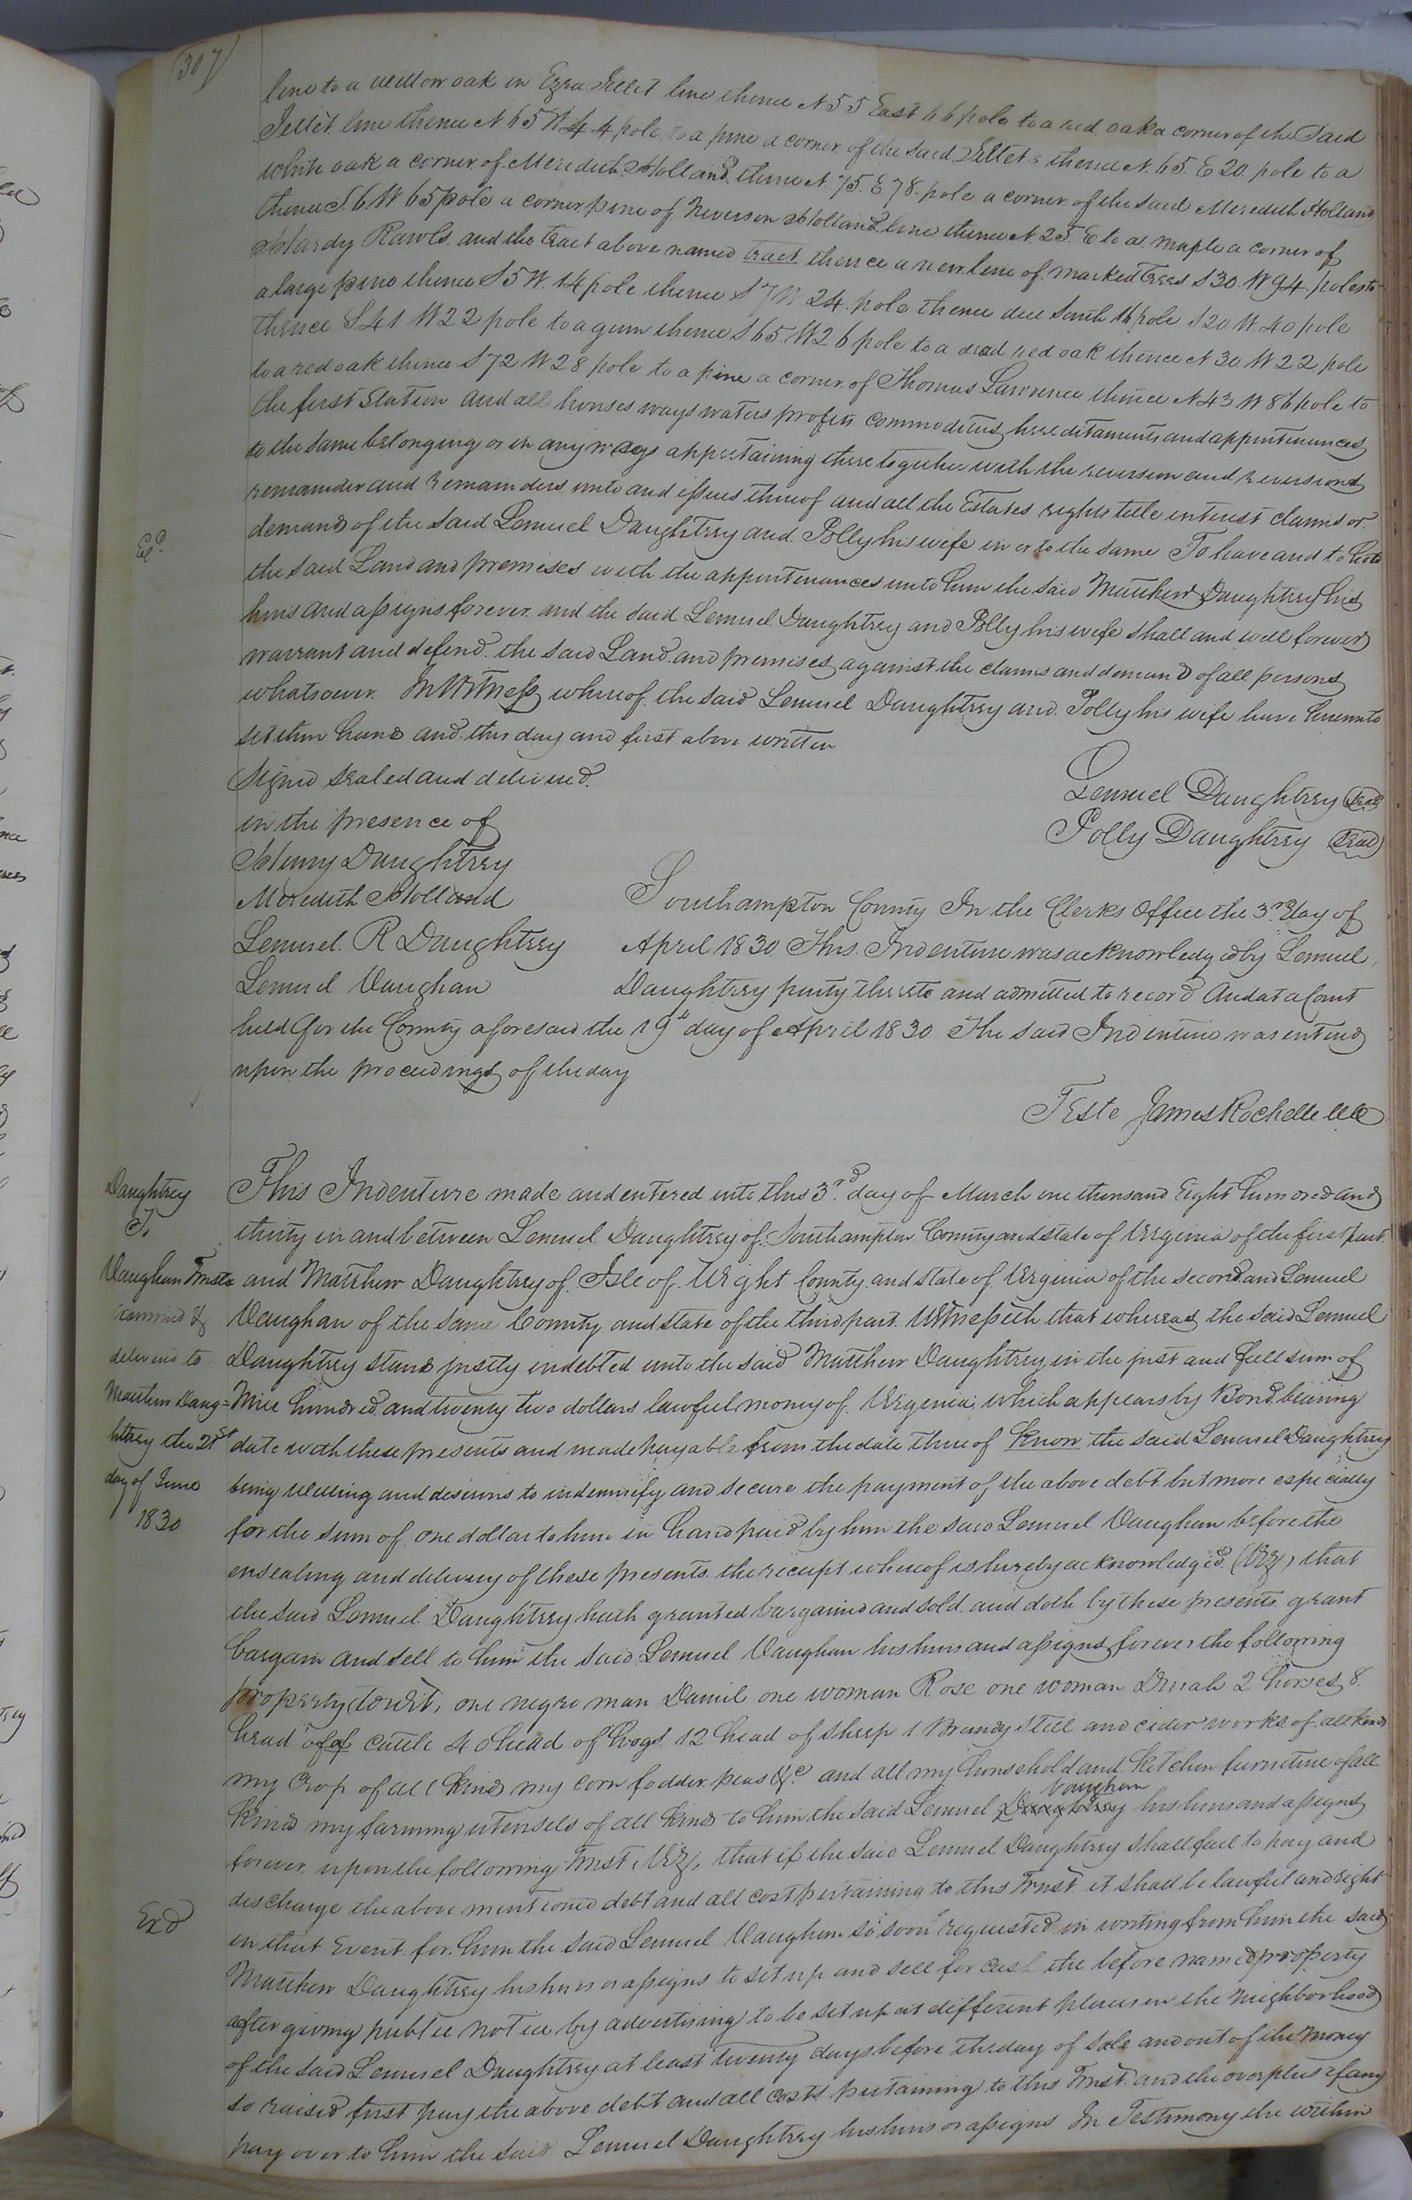 307
line to a willow oak in Ezra Jellit line thence N 55 East 66 pole to a red oak a corner of the Said
Jellit line thence N 65 W 44 pole to a pine a corner of the said Jellets thence N. 65. E 20. pole to a
white oak a corner of Meredith Holland thence N. 75. E 78. pole a corner of the said Meredith Holland
thence S. 6 W 65 pole a corner pine of Neverson Holland line thence N. 25. E to a maple a corner of
Hardy Rawls and the tract above named tract thence a new line of marked trees S 30 W 94 poles to
a large pine thence S 5 W. 14 pole thence S 7 W 24 pole thence due South 16 pole S 20 W 40 pole
thence S 41 W 22 pole to a gum thence S 65 W 26 pole to a dead red oak thence N 30 W 22 pole
to a red oak thence S 72 W 28 pole to a pine a corner of Thomas Lawrence thence N 43 W 86 pole to
the first Station and all houses ways waters profits commodities hereditaments and appurtenances
to the same belonging or in any ways appertaining there together with the reversion and reversions
remainder and remainders unto and issues thereof and all the Estates rights title interest claims or
demands of the said Lemuel Daughtrey and Polly his wife in or to the same To have and to hold
the said Land and premises with the appurtenances unto him the said Matthew Daughtrey his
heirs and assigns forever and the said Lemuel Daughtrey and Polly his wife shall and will forever
warrant and defend the said Land and premises against the claims and demand of all persons
whatsoever In Witness whereof the said Lemuel Daughtrey and Polly his wife have hereunto
set their hand and this day and first above written
Signd sealed and deliverd
in the presence of
Henry Daughtrey
Meredith Holland
Lemuel R Daughtrey
Lemuel Vaughan
Lemuel Daughtrey Seal
Polly Daughtrey Seal
Southampton County In the Clerks Office the 3rd day of
April 1830 This Indenture was acknowledged by Lemuel
Daughtrey party thereto and admitted to record And at a Court
held for the County aforesaid the 19th day of April 1830 The said Indenture was entered
upon the proceedings of the day
Teste James Rochelle CC
Daughtrey
To
Vaughan Truste
Examined &
deliverd to
Matthew Daug=
htrey the 21st
day of June
1830
This Indenture made and entered into this 3rd day of March one thousand Eight hundred and
thirty in and between Lemuel Daughtrey of Southampton County and state of Virginia of the first part
and Matthew Daughtrey of Isle of Wight County and State of Virginia of the second and Lemuel
Vaughan of the same County and state of the third part Witnesseth that whereas the said Lemuel
Daughtrey stand justly indebted unto the said Matthew Daughtrey in the just and full sum of
Nine hundred and twenty two dollars lawful money of Virginia which appears by Bond bearing
date with these presents and made payable from the date thereof know the said Lemuel Daughtrey
being willing and desirous to indemnify and secure the payment of the above debt but more especially
for the sum of one dollar to him in hand paid by him the said Lemuel Vaughan before the
ensealing and delivery of these presents the receipt whereof is hereby acknowledged (Viz) that
the said Lemuel Daughtrey hath granted bargained and sold and doth by these presents grant
bargain and sell to him the said Lemuel Vaughan his heirs and assigns forever the following
property towit, one negro man Daniel one woman Rose one woman Dinah 2 horses 8
head of of cattle 40 head of hogs 12 head of sheep 1 Brandy Still and cider works of all kind
my crop of all kind my corn fodder peas &c and all my household and kitchen furniture of all
kind my farming utensils of all kind to him the said Lemuel Daughtrey Vaughan his heirs and assigns
forever upon the following Trust Viz, that if the said Lemuel Daughtrey shall fail to pay and
discharge the above mentioned debt and all cost pertaining to this Trust it shall be lawful and right
Exd
in that Event for him the said Lemuel Vaughan so soon requested in writing from him the said
Matthew Daughtrey his heirs or assigns to set up and sell for cash the before named property
after giving public notice by advertising to be set up at different places in the neighborhood
of the said Lemuel Daughtrey at least twenty days before the day of sale and out of the money
so raised first pay the above debt and all costs pertaining to this Trust and the overplus if any
pay over to him the said Lemuel Daughtrey his heirs or assigns In Testimony the within